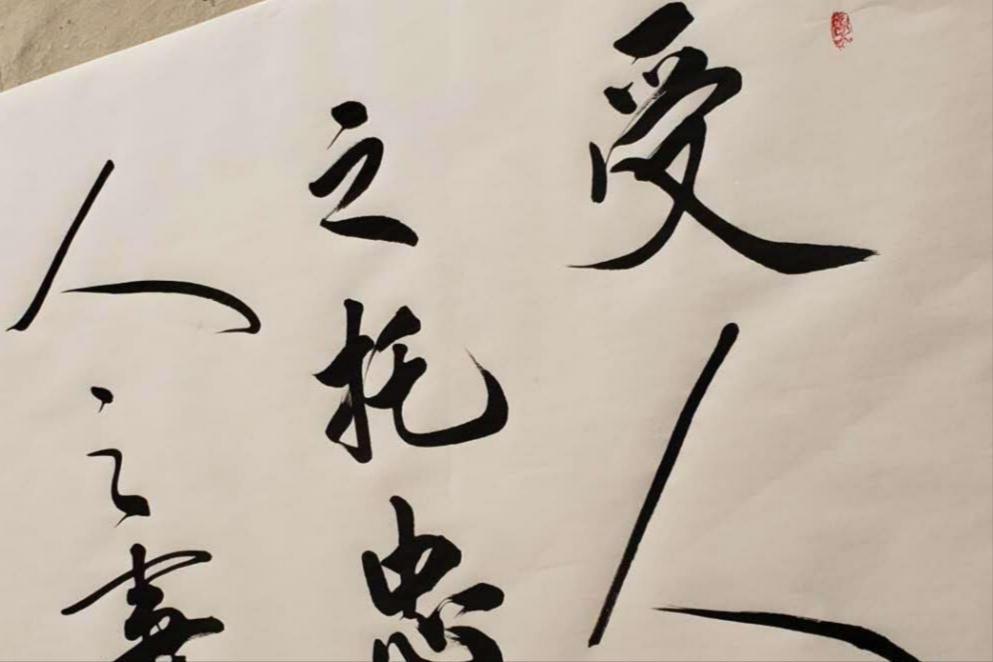 受人
之托忠
人之事